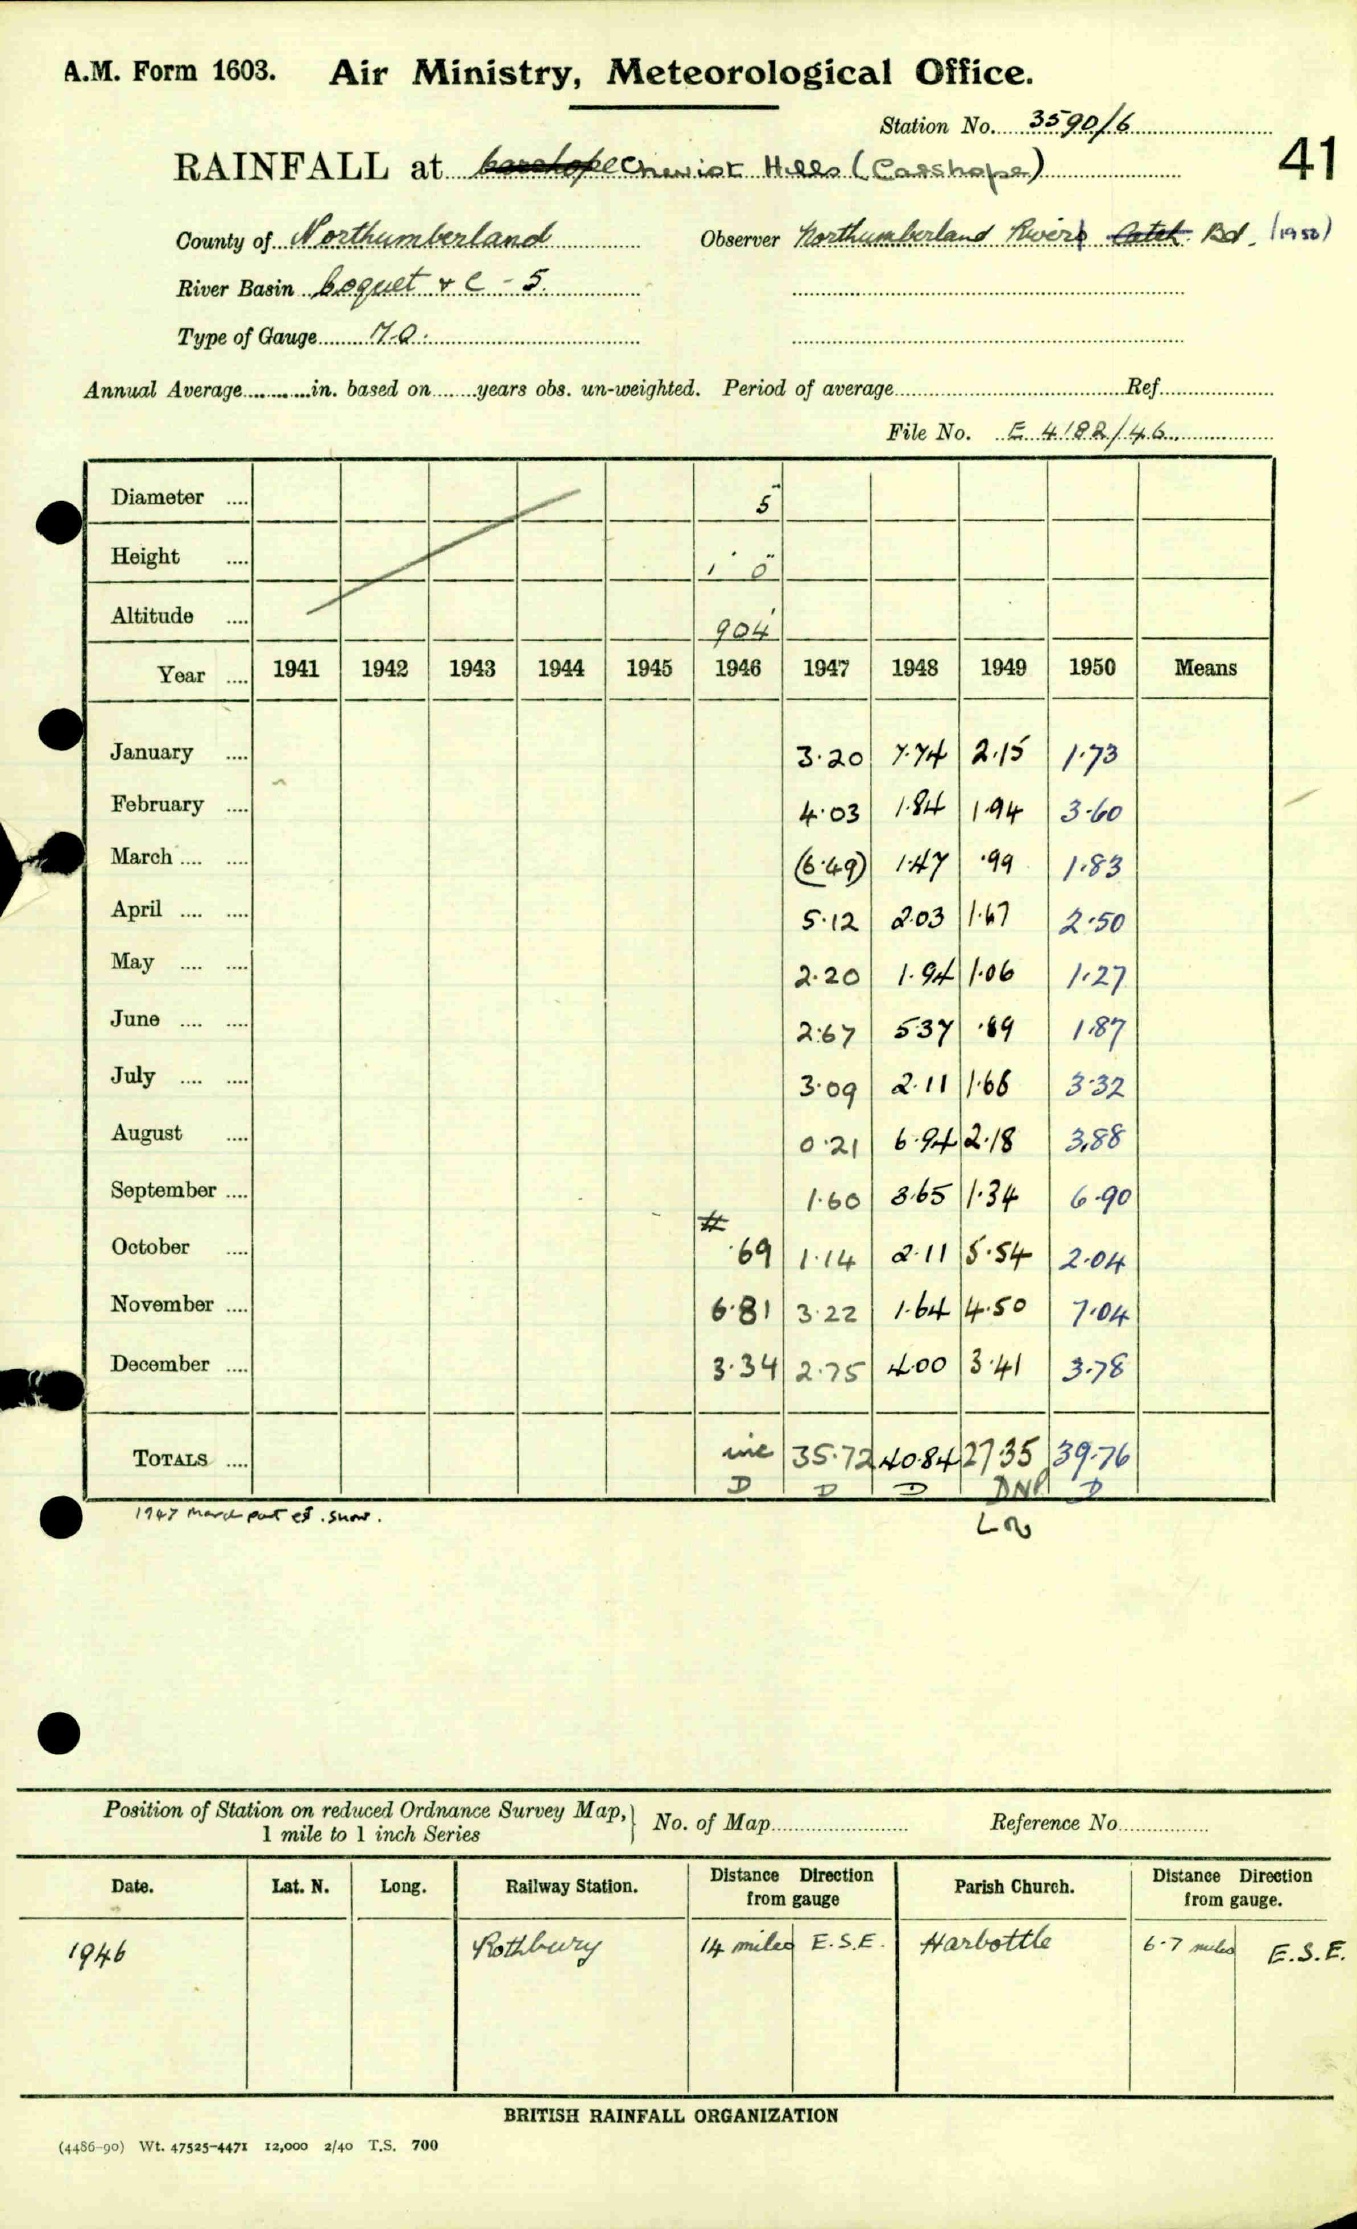 A.M. Form 1603. Air Ministry, Meteorological Office.
Station No. 3590/6
41
RAINFALL at Cheviot Hills (Carshope)
County of Northumberland Observer Northumberland Rivers Catch. Bd. (1950)
River Basin Coquet & C - 5.
Type of Gauge M.O.
Annual Average in. based on years obs. un-weighted. Period of average Ref.
File No. E 4182/46
Diameter .... 5"
Height .... 1' 0"
Altitude .... 904'
Year .... 1941 1942 1943 1944 1945 1946 1947 1948 1949 1950 Means
January .... 3.20 7.74 2.15 1.73
February .... 4.03 1.84 1.94 3.60
March .... .... (6.49) 1.47 .99 1.83
April .... .... 5.12 2.03 1.67 2.50
May .... .... 2.20 1.94 1.06 1.27
June .... .... 2.67 5.37 .89 1.87
July .... .... 3.09 2.11 1.68 3.32
August .... 0.21 6.94 2.18 3.88
September .... 1.60 3.65 1.34 6.90
October .... .69 1.14 2.11 5.54 2.04
November .... 6.81 3.22 1.64 4.50 7.04
December .... 3.34 2.75 4.00 3.41 3.78
TOTALS .... inc 35.72 40.84 27.35 39.76
D D D DNP D
1947 March part est. snow.
Position of Station on reduced Ordnance Survey Map, No. of Map Reference No.
1 mile to 1 inch Series
Date. Lat. N. Long. Railway Station. Distance Direction from gauge Parish Church. Distance Direction from gauge.
1946 Rothbury 14 miles E.S.E. Harbottle 6-7 miles E.S.E.
BRITISH RAINFALL ORGANIZATION
(4486-90) Wt. 47525-4471 12,000 2/40 T.S. 700